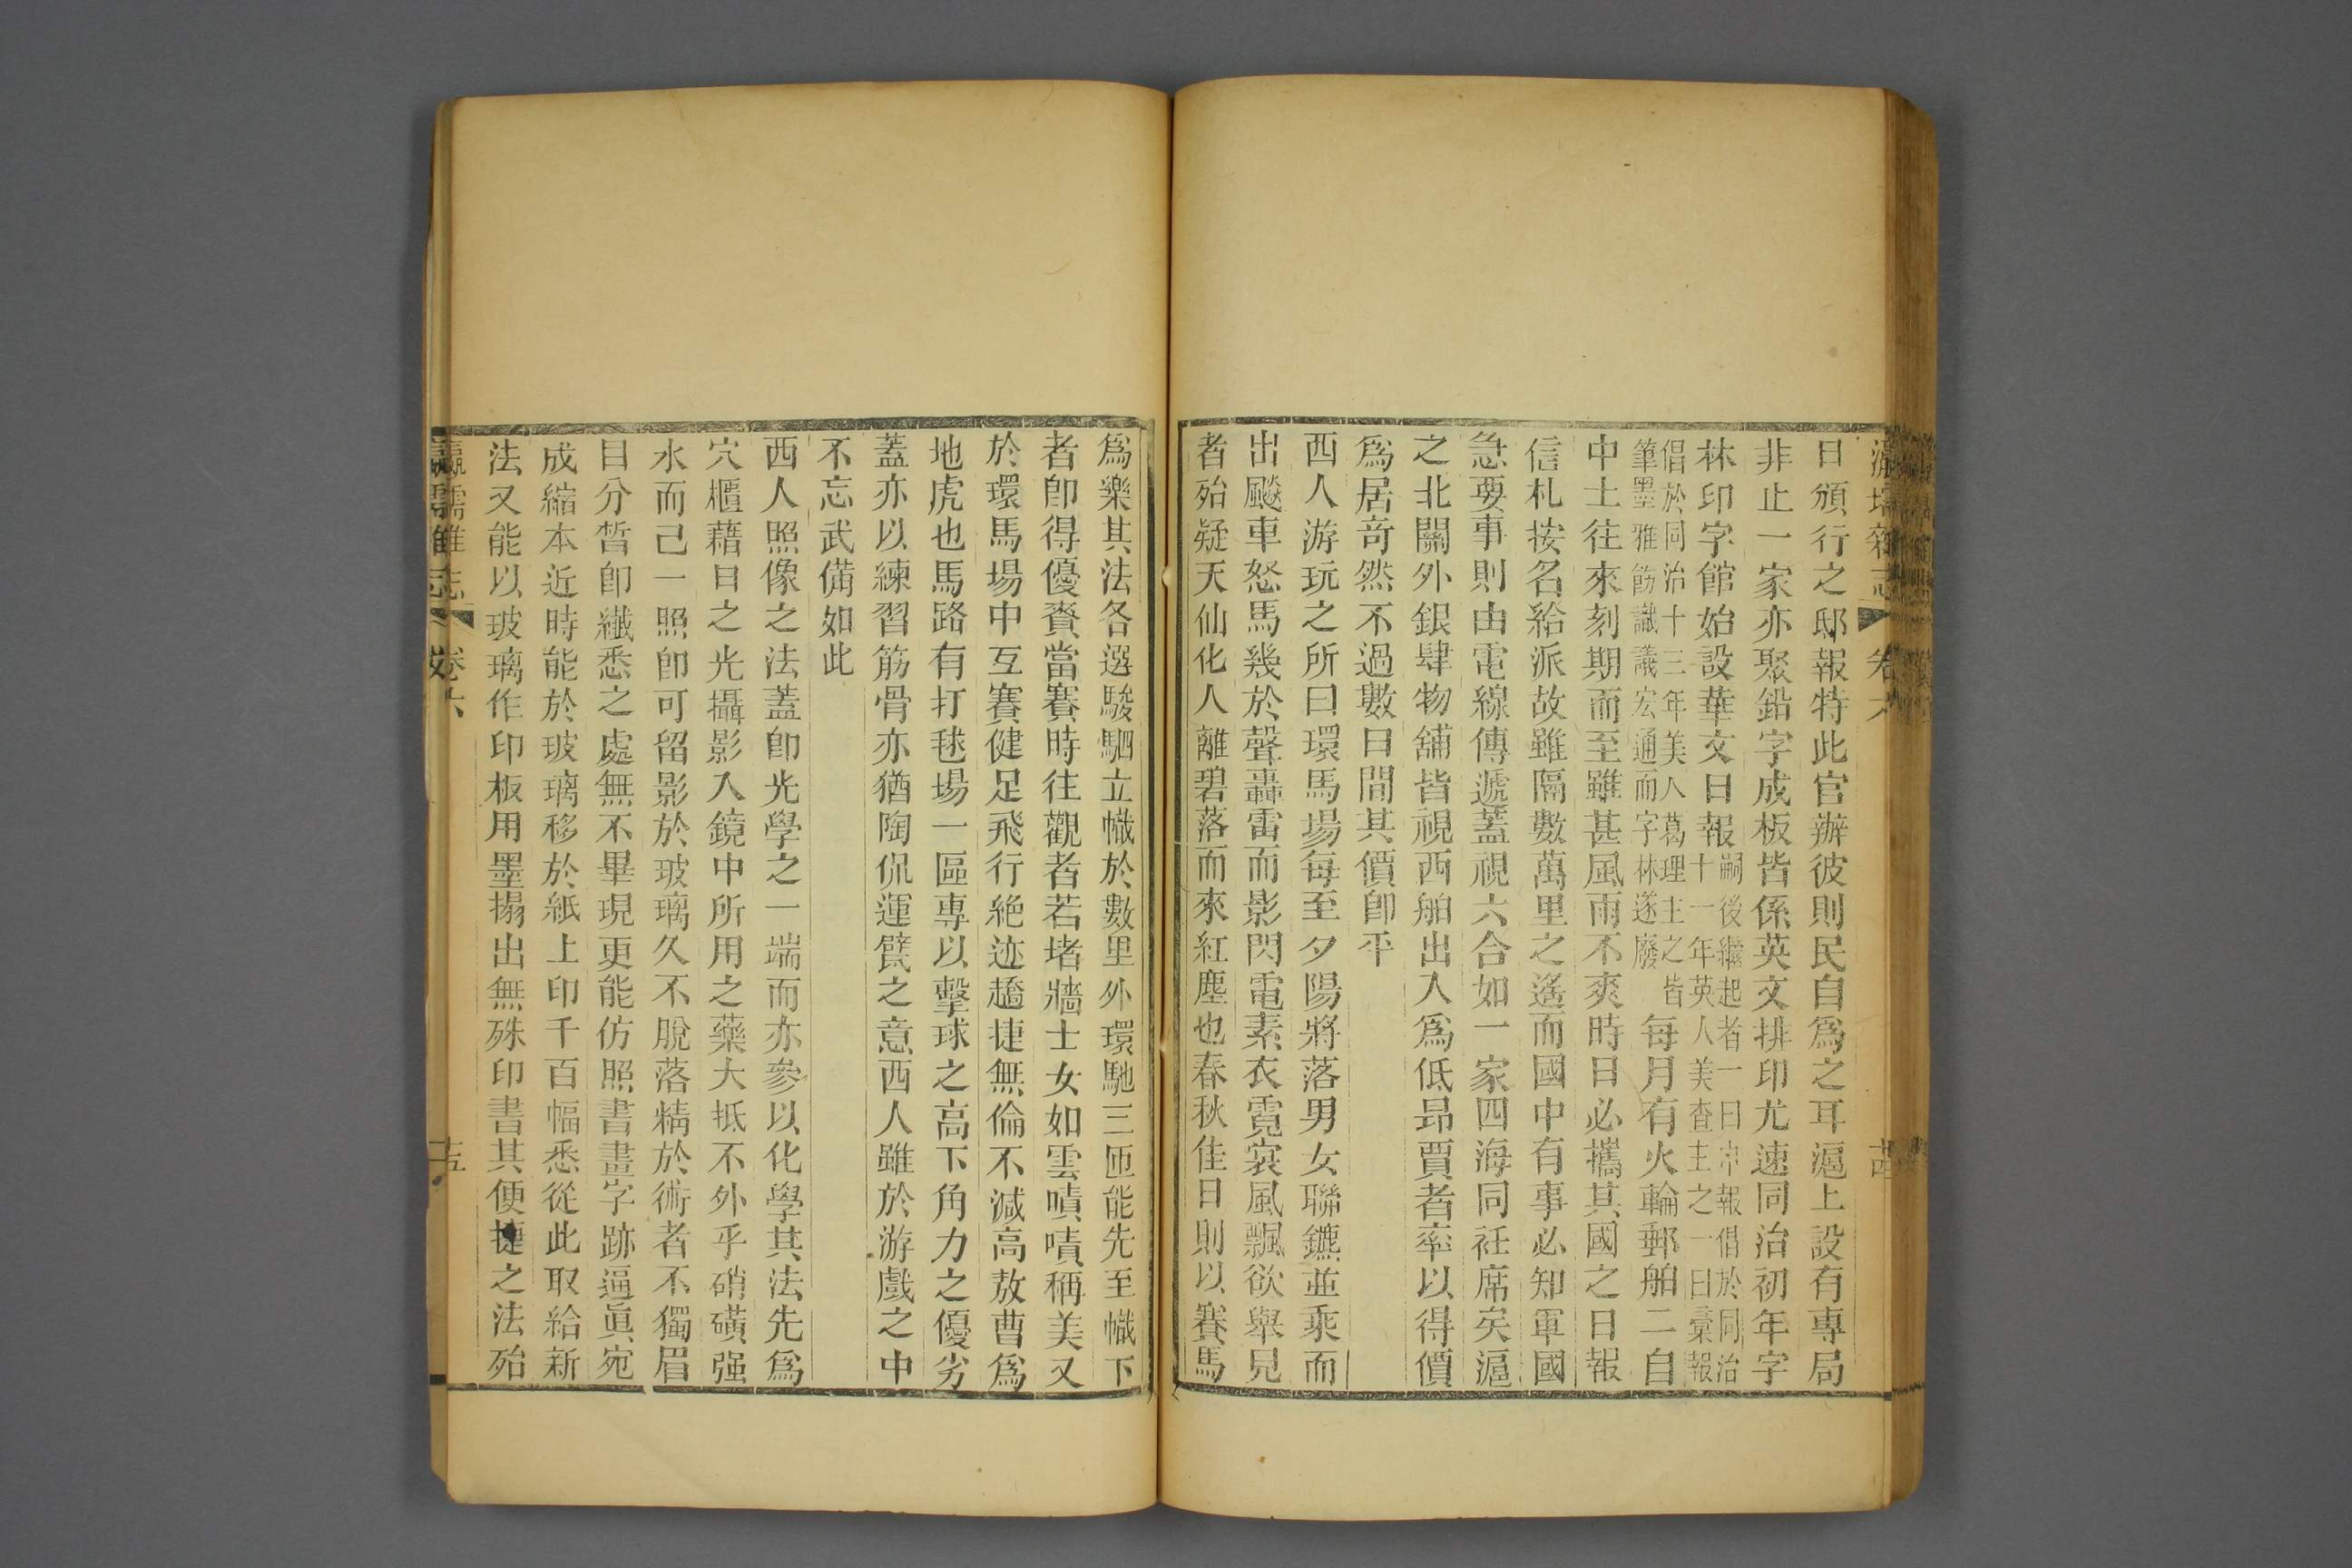 瀛壖雜志 卷六 十四
日頒行之邸報特此官辦彼則民自爲之耳滬上設有專局
非止一家亦聚鉛字成板皆係英文排印尤速同治初年字
林印字館始設華文日報嗣後繼起者一曰申報倡於同治
十一年英人美查主之一曰彙報
倡於同治十三年美人葛理主之皆
筆墨雅飭識議宏通而字林遂廢每月有火輪郵舶二自
中土往來刻期而至雖甚風雨不爽時日必攜其國之日報
信札按名給派故雖隔數萬里之遙而國中有事必知軍國
急要事則由電線傳遞蓋視六合如一家四海同衽席矣滬
之北關外銀肆物舖皆視西舶出入爲低昂賈者率以得價
爲居奇然不過數日間其價卽平
西人游玩之所曰環馬場每至夕陽將落男女聯鑣並乘而
出飈車怒馬幾於聲轟雷而影閃電素衣霓裳風飄欲舉見
者殆疑天仙化人離碧落而來紅塵也春秋佳日則以賽馬
爲樂其法各選駿駟立幟於數里外環馳三匝能先至幟下
者卽得優賚當賽時往觀者若堵牆士女如雲嘖嘖稱美又
於環馬場中互賽健足飛行絶迹趫捷無倫不減高敖曹爲
地虎也馬路有打毬場一區專以擊球之高下角力之優劣
蓋亦以練習筋骨亦猶陶侃運甓之意西人雖於游戲之中
不忘武備如此
西人照像之法蓋卽光學之一端而亦參以化學其法先爲
穴櫃藉日之光攝影入鏡中所用之藥大抵不外乎硝磺强
水而已一照卽可留影於玻璃久不脫落精於術者不獨眉
目分晳卽纖悉之處無不畢現更能仿照書畫字跡逼眞宛
成縮本近時能於玻璃移於紙上印千百幅悉從此取給新
法又能以玻璃作印板用墨搨出無殊印書其便捷之法殆
瀛壖雜志 卷六 十五